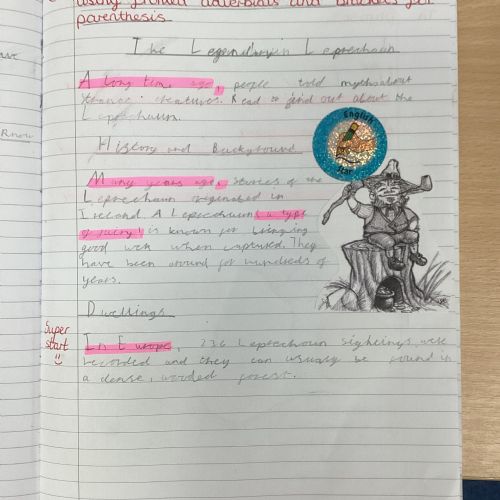 using fronted adverbials and brackets for
parenthesis
The Legendary Leprechaun
A long time ago, people told myths about
strange creatures. Read to find out about the
Leprechaun.
Know
History and Background
English
Star
Many years ago, stories of the
Leprechaun originated in
Ireland. A Leprechaun (a type
of fairy) is known for bringing
good when captured. They
have been around for hundreds of
years.
Dwellings
Super
start
In Europe, 236 Leprechaun sightings were
recorded and they can usually be found in
a dense, wooded forest.